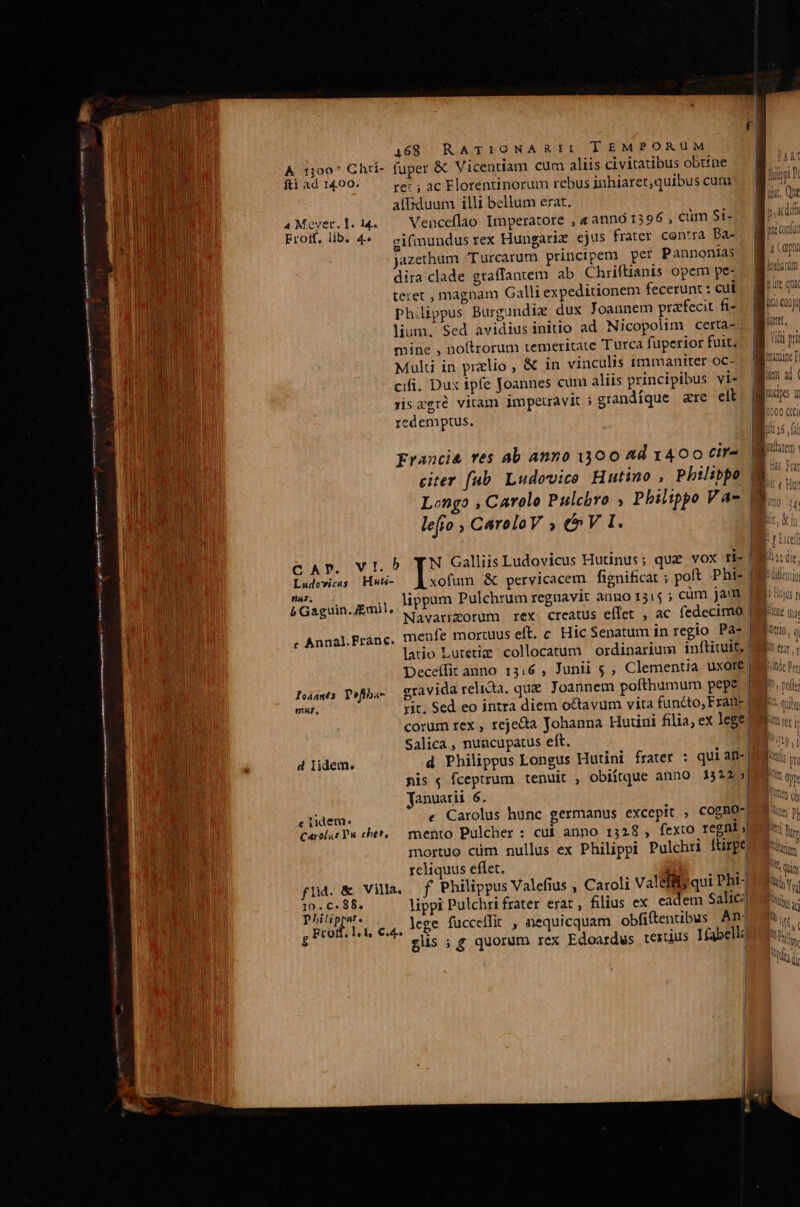 468 RATIONARII TEMPORUM
A 1300 Chri-
sti ad 1400.
super & Vicentiam cum aliis civitatibus obtine
ret; ac Florentinorum rebus inhiaret, quibus cum
assiduum illi bellum erat.
a Meyer. l. 14.
Froiss. lib. 4.
Venceslao Imperatore, a anno 1396, cùm Si-
gismundus rex Hungariæ ejus frater contra Ba-
jazethum Turcarum principem per Pannonias
dira clade grassantem ab Christianis opem pe-
teret, magnam Galli expeditionem fecerunt: cui
Philippus Burgundiæ dux Joannem præfecit fi-
lium. Sed avidius initio ad Nicopolim certa-
mine, nostrorum temeritate Turca superior fuit.
Multi in prælio, & in vinculis immaniter oc-
cisi. Dux ipse Joannes cum aliis principibus vi-
xis ægrè vitam impetravit; grandíque ære est
redemptus.
Franciæ res ab anno 1300 ad 1400 cir-
citer sub Ludovico Hutino, Philippo
Longo, Carolo Pulchro, Philippo Va-
lesio, Carolo V, & VI.
CAP. VI. b
Ludovicus Huti-
nus.
b Gaguin. Æmil.
IN Galliis Ludovicus Hutinus; quæ vox ri-
xosum & pervicacem significat; post Phi-
lippum Pulchrum regnavit anno 1315; cùm jam
Navarrxorum rex creatus esset, ac sedecimo
c Annal. Franc.
mense mortuus est. c Hic Senatum in regio Pa-
latio Lutetiæ collocatum ordinarium instituit.
Decessit anno 1316, Junii 5, Clementia uxore
Ioannes Posthu-
mus.
gravida relicta. quæ Joannem posthumum pepe
rit. Sed eo intra diem octavum vita functo, Fran-
corum rex, rejecta Johanna Hutini filia, ex lege
Salica, nuncupatus est.
d Iidem.
d Philippus Longus Hutini frater: qui an-
nis 5 sceptrum tenuit, obiítque anno 1322,
Januarii 6.
e Iidem.
Carolus Pulcher.
e Carolus hunc germanus excepit, cogno-
mento Pulcher: cui anno 1328, sexto regni,
mortuo cùm nullus ex Philippi Pulchri stirpe
reliquus esset.
f Iid. & Villa.
10. c. 88.
Philippus.
g Froiss. l. 1. c. 4.
f Philippus Valesius, Caroli Valesii, qui Phi-
lippi Pulchri frater erat, filius ex eadem Salica
lege successit, nequicquam obsistentibus An-
glis; g quorum rex Edoardus tertius Isabellæ